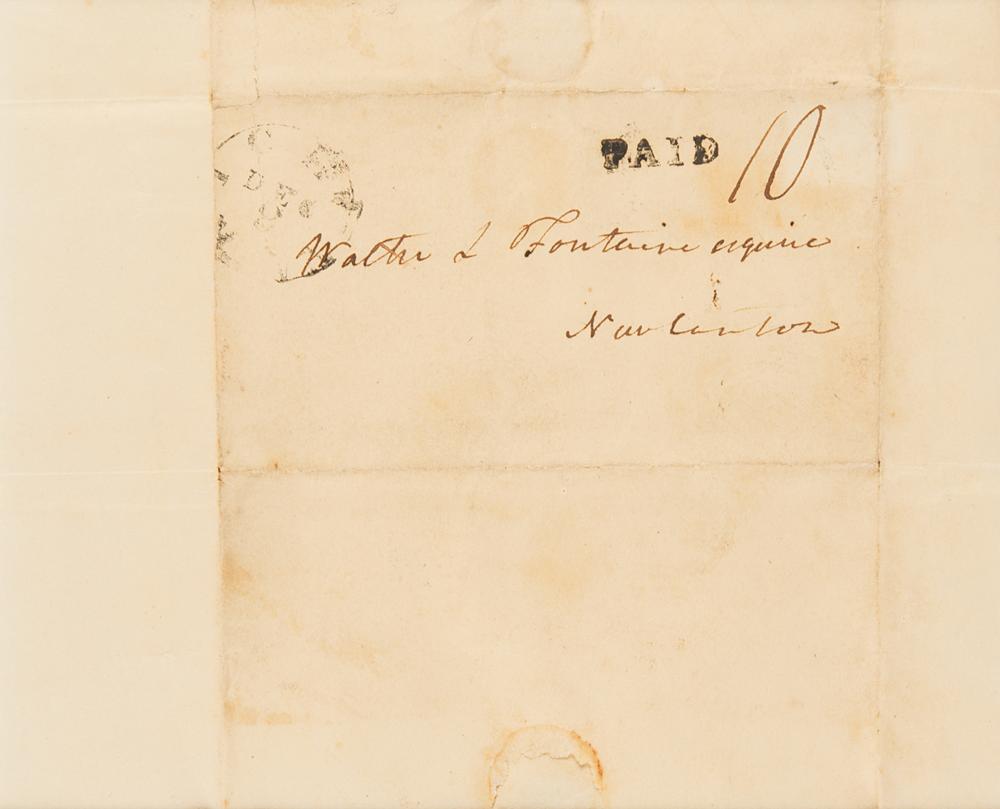 PAID 10
Walter L Fontaine esquire
New Canton